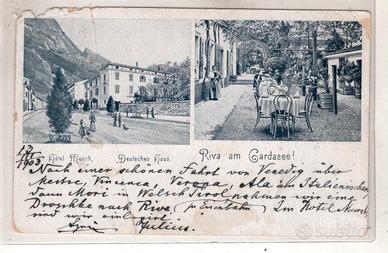 Hôtel Musch, Deutsches Haus. Riva am Gardasee!
1903
Nach einer schönen Fahrt von Venedig über
Mestre, Vincenca, Verona, Ala im Italienischen
dann Mori in Wälsch Tirol nahmen wir eine
Droschke nach Riva, (p Eisenbahn) Im Hotel Musch
sind wir
Julius.
SUBITO